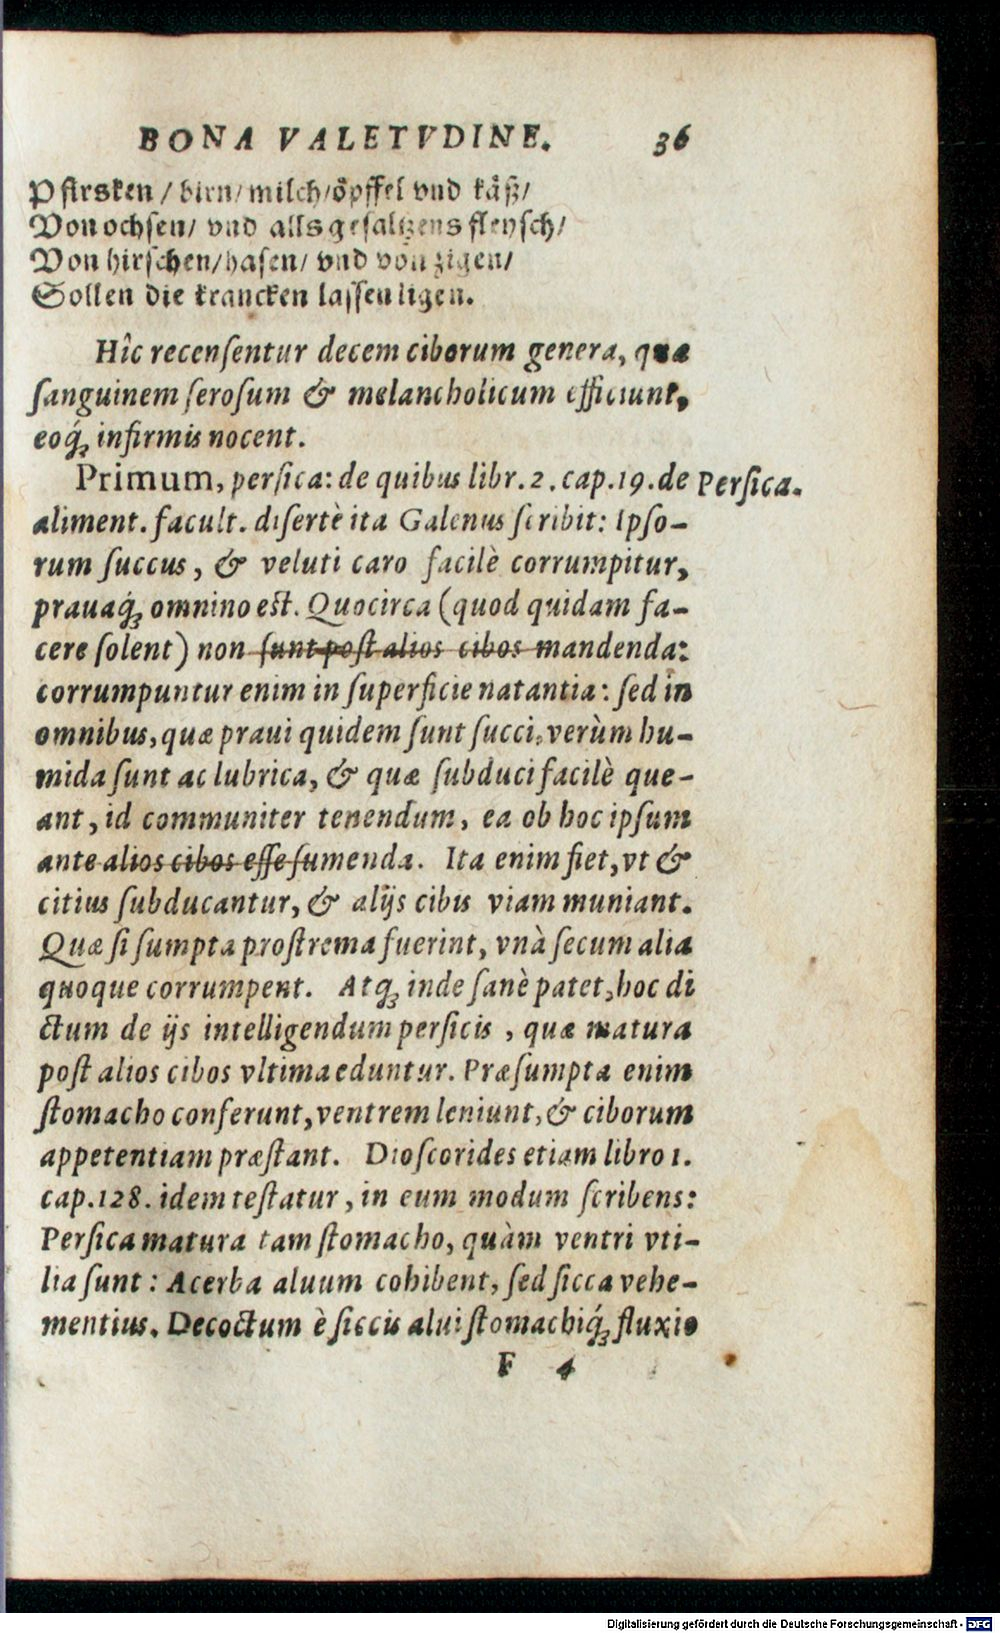 BONA VALETVDINE. 36
Pfirsken / birn / milch / öpffel vnd käß /
Von ochsen / vnd alls gesaltzens fleysch /
Von hirschen / hasen / vnd von zigen /
Sollen die krancken lassen ligen.
Hîc recenſentur decem ciborum genera, quæ
ſanguinem ſeroſum & melancholicum efficiunt,
eoq́ꝫ infirmis nocent.
Primum, perſica: de quibus libr. 2. cap. 19. de Perſica.
aliment. facult. diſertè ita Galenus ſcribit: Ipſo-
rum ſuccus, & veluti caro facilè corrumpitur,
prauaq́ꝫ omnino eſt. Quocirca (quod quidam fa-
cere ſolent) non ſunt poſt alios cibos mandenda:
corrumpuntur enim in ſuperficie natantia: ſed in
omnibus, quæ praui quidem ſunt ſucci, verùm hu-
mida ſunt ac lubrica, & quæ ſubduci facilè que-
ant, id communiter tenendum, ea ob hoc ipſum
ante alios cibos eſſe ſumenda. Ita enim fiet, vt &
citius ſubducantur, & alijs cibis viam muniant.
Quæ ſi ſumpta proſtrema fuerint, vnà ſecum alia
quoque corrumpent. Atqꝫ inde ſanè patet, hoc di
ctum de ijs intelligendum perſicis, quæ matura
poſt alios cibos vltima eduntur. Præſumpta enim
ſtomacho conferunt, ventrem leniunt, & ciborum
appetentiam præſtant. Dioſcorides etiam libro 1.
cap. 128. idem teſtatur, in eum modum ſcribens:
Perſica matura tam ſtomacho, quàm ventri vti-
lia ſunt: Acerba aluum cohibent, ſed ſicca vehe-
mentius. Decoctum è ſiccis alui ſtomachiq́ꝫ fluxio
F 4
Digitalisierung gefördert durch die Deutsche Forschungsgemeinschaft - DFG